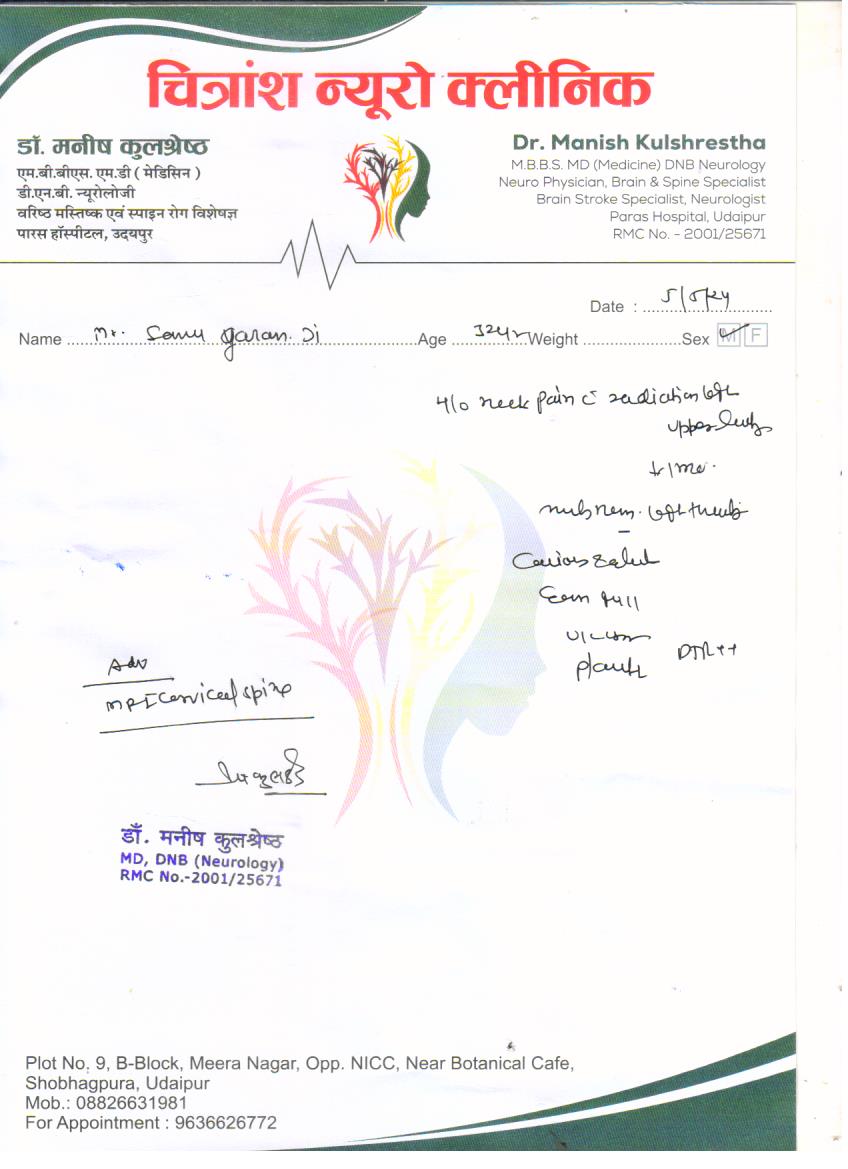 चित्रांश न्यूरो क्लीनिक
डॉ. मनीष कुलश्रेष्ठ
एम.बी.बीएस. एम.डी ( मेडिसिन )
डी.एन.बी. न्यूरोलोजी
वरिष्ठ मस्तिष्क एवं स्पाइन रोग विशेषज्ञ
पारस हॉस्पीटल, उदयपुर
Dr. Manish Kulshrestha
M.B.B.S. MD (Medicine) DNB Neurology
Neuro Physician, Brain & Spine Specialist
Brain Stroke Specialist, Neurologist
Paras Hospital, Udaipur
RMC No. - 2001/25671
Date : 5/5/24
Name Mr. Age 32yr Weight Sex M F
H/o neck pain c radiation left
upper limb
left thumb
DTR ++
Adv
MRI Cervical spine
डाॅ. मनीष कुलश्रेष्ठ
MD, DNB (Neurology)
RMC No.-2001/25671
Plot No. 9, B-Block, Meera Nagar, Opp. NICC, Near Botanical Cafe,
Shobhagpura, Udaipur
Mob.: 08826631981
For Appointment : 9636626772